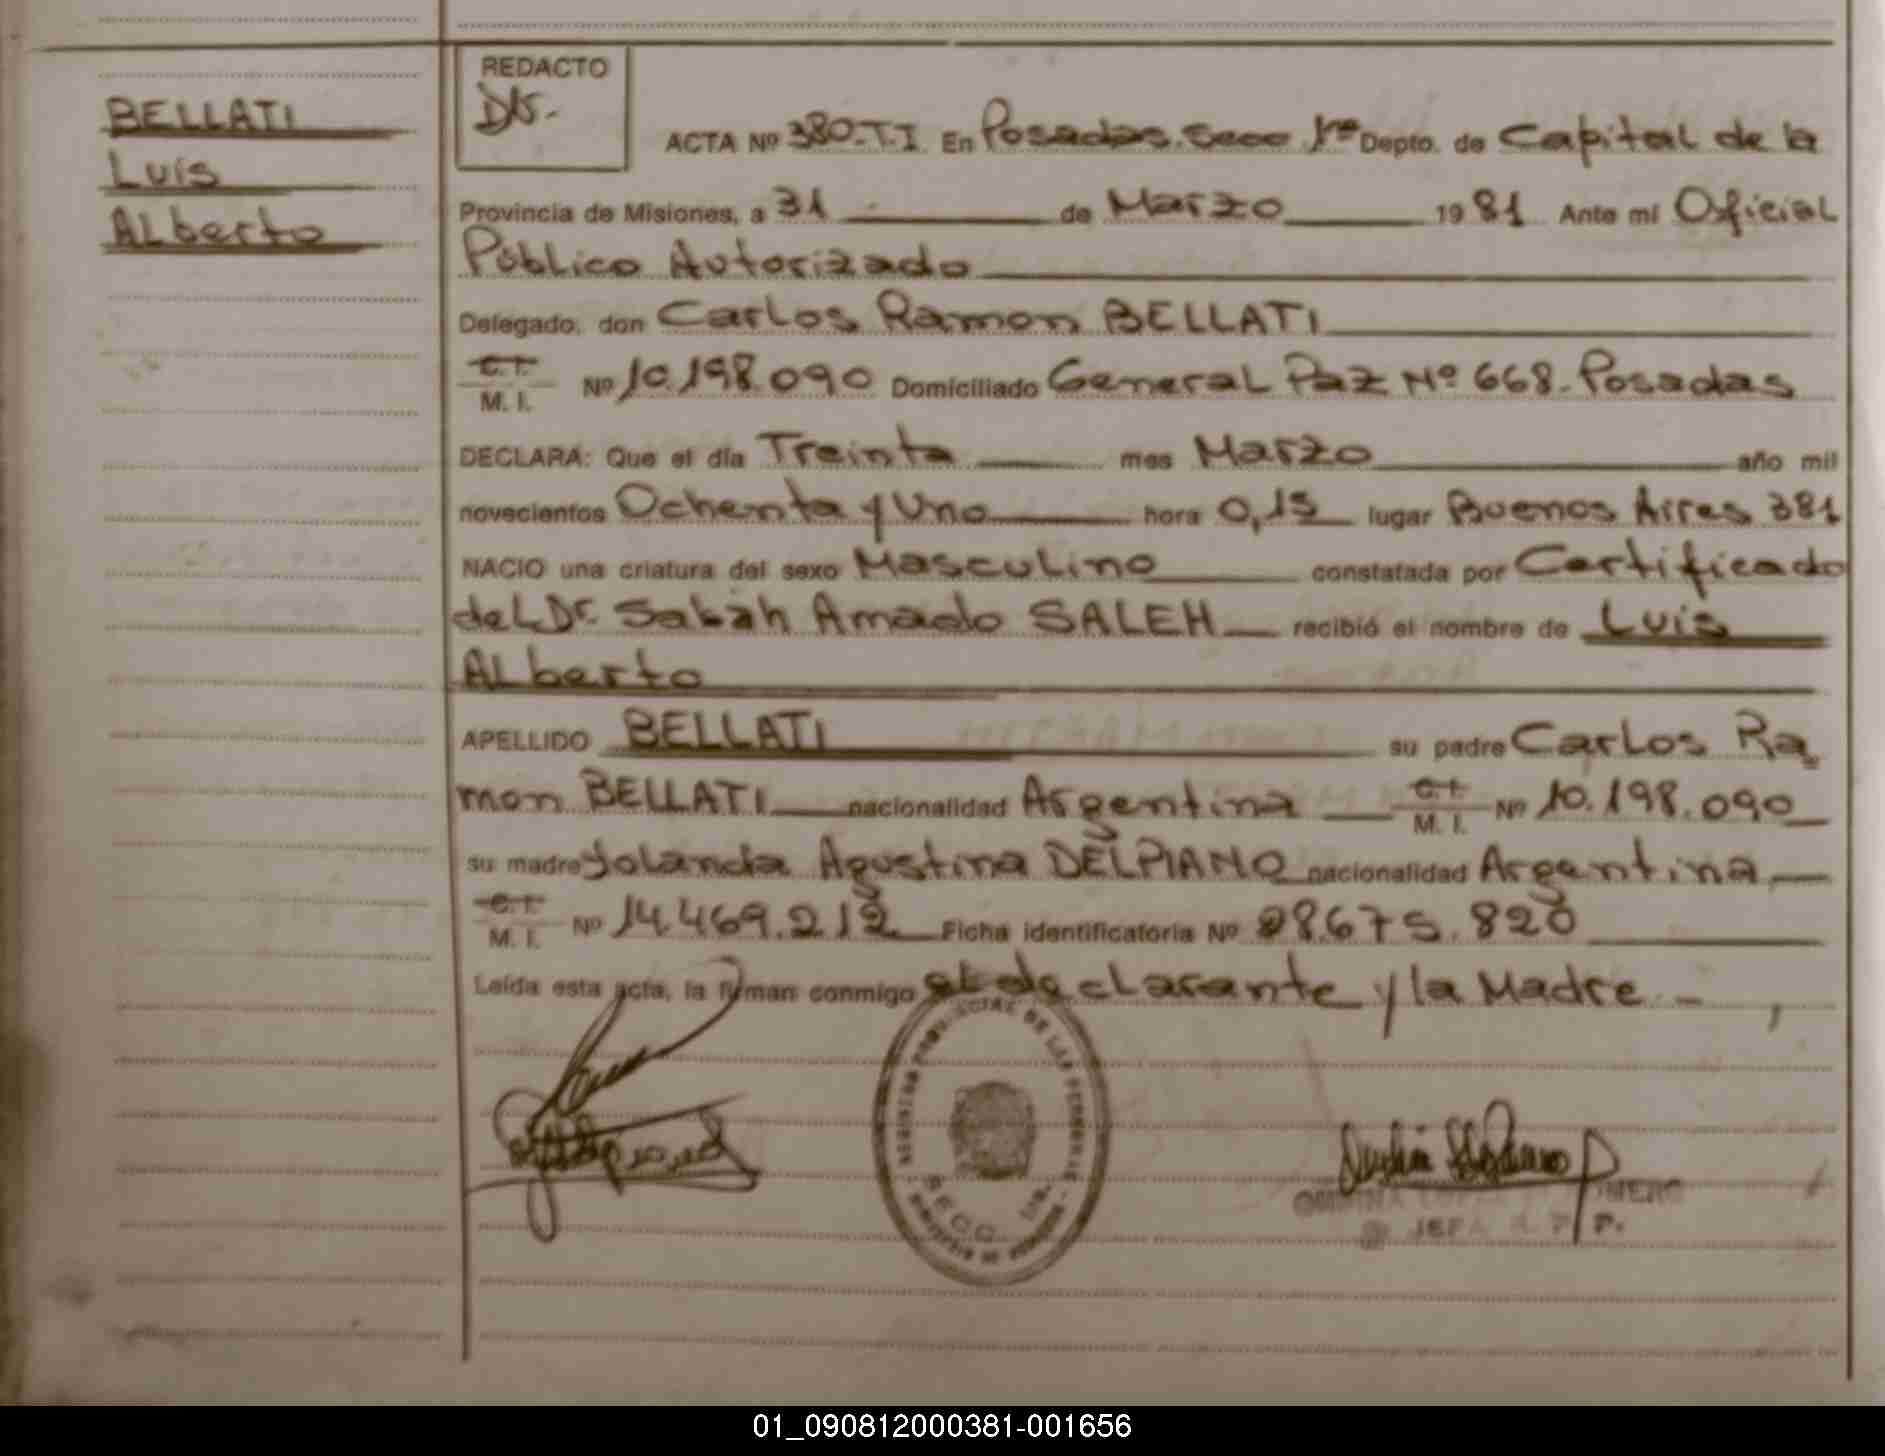 BELLATI
Luis
Alberto
REDACTO
ACTA Nº 380-T.I. En Posadas. Secc. 1ra Depto. de Capital de la
Provincia de Misiones, a 31 de Marzo 1981 Ante mí Oficial
Público Autorizado
Delegado, don Carlos Ramon BELLATI
C.I. M. I. Nº 10.198.090 Domiciliado General Paz Nº 668. Posadas
DECLARA: Que el día Treinta mes Marzo año mil
novecientos Ochenta y Uno hora 0,15 lugar Buenos Aires 381
NACIO una criatura del sexo Masculino constatada por Certificado
del Dr. Sabah Amado SALEH recibió el nombre de Luis
Alberto
APELLIDO BELLATI su padre Carlos Ra
mon BELLATI nacionalidad Argentina C.I. M. I. Nº 10.198.090
su madre Yolanda Agustina DELPIANO nacionalidad Argentina
C.I. M. I. Nº 14.469.212 Ficha identificatoria Nº 28.675.820
Leída esta acta, la firman conmigo el declarante y la Madre
PROVINCIAL DE LAS PERSONAS
SECC. 1ra.
JEFA
01_090812000381-001656